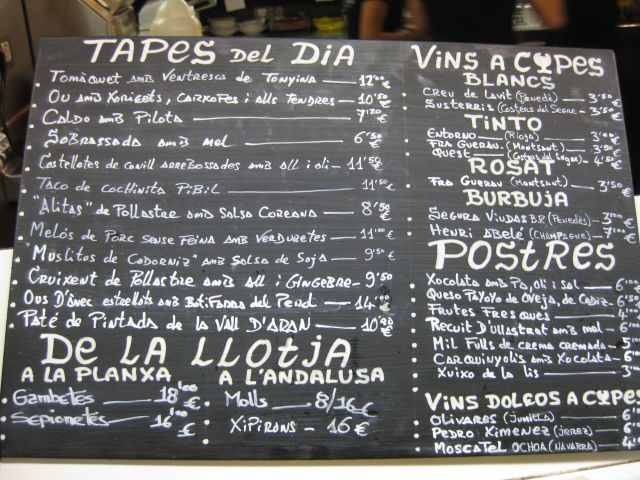 TAPES DEL DIA
Tomàquet amb Ventresca de Tonyina — 12'00 €
Ou amb Xoriçets, Carxofes i alls tendres — 10'50 €
Caldo amb Pilota — 7'20 €
Sobrassada amb mel — 6'50 €
Costelletes de conill arrebossades amb all i oli - 11'50 €
Taco de cochinita Pibil — 11'50 €
"Alitas" de Pollastre amb Salsa Coreana — 8'50 €
Melós de Porc sense feina amb Verduretes — 11'00 €
"Muslitos de Codorniz" amb Salsa de Soja — 9'50 €
Cruixent de Pollastre amb all i Gingebre - 9'50 €
Ous D'ànec estrellats amb Botifarra del Perol — 14'00 €
Paté de Pintada de la Vall D'Aran — 10'90 €
DE LA LLOTJA
A LA PLANXA
Gambetes — 18'00 €
Sepionetes — 16'00 €
A L'ANDALUSA
Molls — 8/16 €
Xipirons - 16 €
VINS A COPES
BLANCS
Creu de Lavit (Penedès) — 3'50 €
Susterris (Costers del Segre) - 3'50 €
TINTO
Entorno (Rioja) — 3'00 €
Fra Guerau (Montsant) — 3'50 €
Quest (Costers del Segre) — 4'50 €
ROSAT
Fra Guerau (Montsant) — 3'50 €
BURBUJA
Segura Viudas B.R (Penedès) — 3'00 €
Henri Abelé (Champagne) — 7'00 €
POSTRES
Xocolata amb Pa, oli i sal — 6
Queso Payoyo de Oveja, de Cadiz - 6'50
Frutes Fresques — 4
Recuit D'Ullastret amb mel — 6
Mil Fulls de crema cremada — 5
Carquinyolis amb Xocolata — 6
Xuixo de la lis — 3
VINS DOLÇOS A COPES
Olivares (Jumilla) — 6
Pedro Ximenez (Jerez) — 6
Moscatel Ochoa (Navarra) — 4